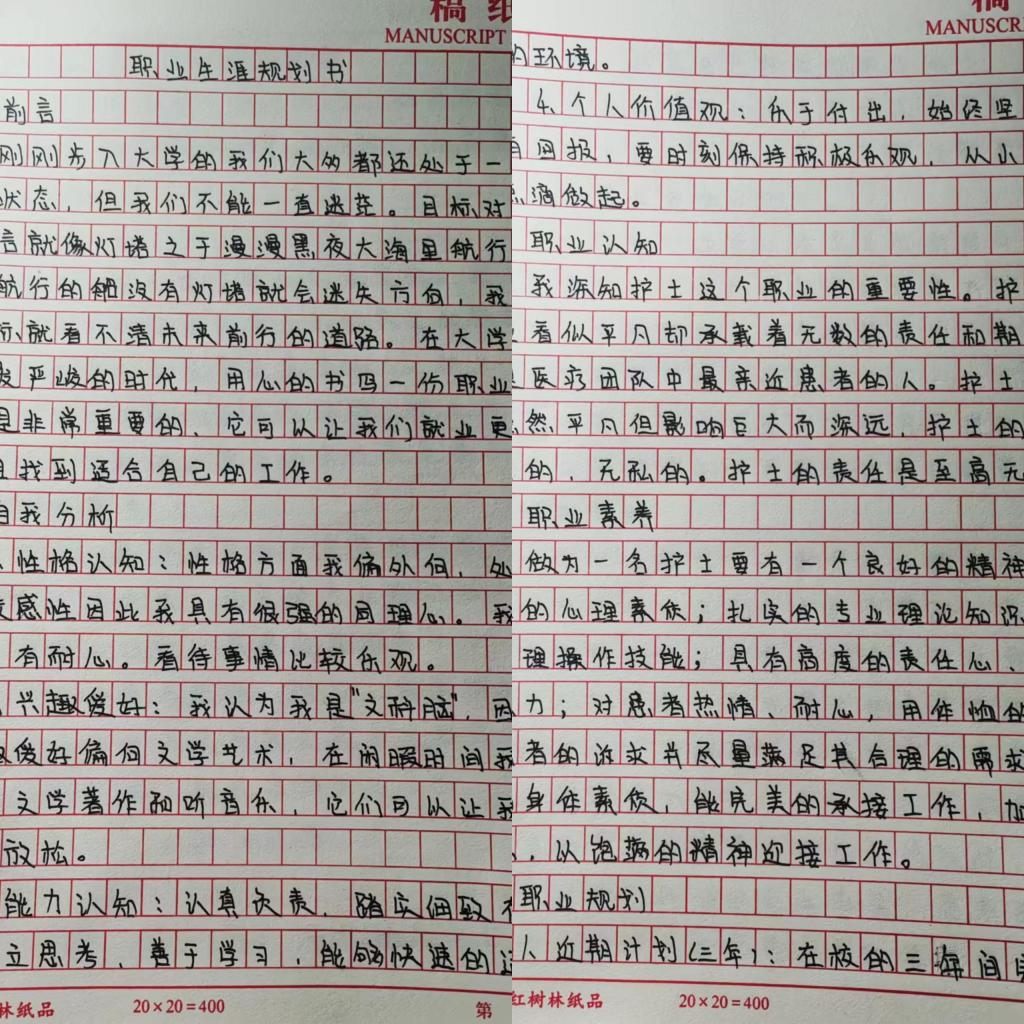 稿纸
MANUSCRIPT
职业生涯规划书
前言
刚刚步入大学的我们大多都还处于一
状态，但我们不能一直迷茫。目标对
言就像灯塔之于漫漫黑夜大海里航行
航行的船没有灯塔就会迷失方向，我
标就看不清未来前行的道路。在大学
严峻的时代，用心的书写一份职业
是非常重要的，它可以让我们就业更
且找到适合自己的工作。
自我分析
性格认知：性格方面我偏外向，处
感性因此我具有很强的同理心。我
有耐心。看待事情比较乐观。
兴趣爱好：我认为我是"文科脑"，因
爱好偏向文学艺术，在闲暇时间我
文学著作和听音乐，它们可以让我
放松。
能力认知：认真负责，踏实细致有
立思考，善于学习，能够快速的适
林纸品
20×20=400
第
稿
MANUSCR
的环境。
4、个人价值观：乐于付出，始终坚
有回报，要时刻保持积极乐观，从小
点滴做起。
职业认知
我深知护士这个职业的重要性。护
看似平凡却承载着无数的责任和期
医疗团队中最亲近患者的人。护士
然平凡但影响巨大而深远，护士的
的，无私的。护士的责任是至高无
职业素养
做为一名护士要有一个良好的精神
的心理素质；扎实的专业理论知识
理操作技能；具有高度的责任心、
力；对患者热情、耐心，用体恤的
者的诉求并尽量满足其合理的需求
身体素质，能完美的承接工作，加
，以饱满的精神迎接工作。
职业规划
1、近期计划(三年)：在校的三年间
红树林纸品
20×20=400